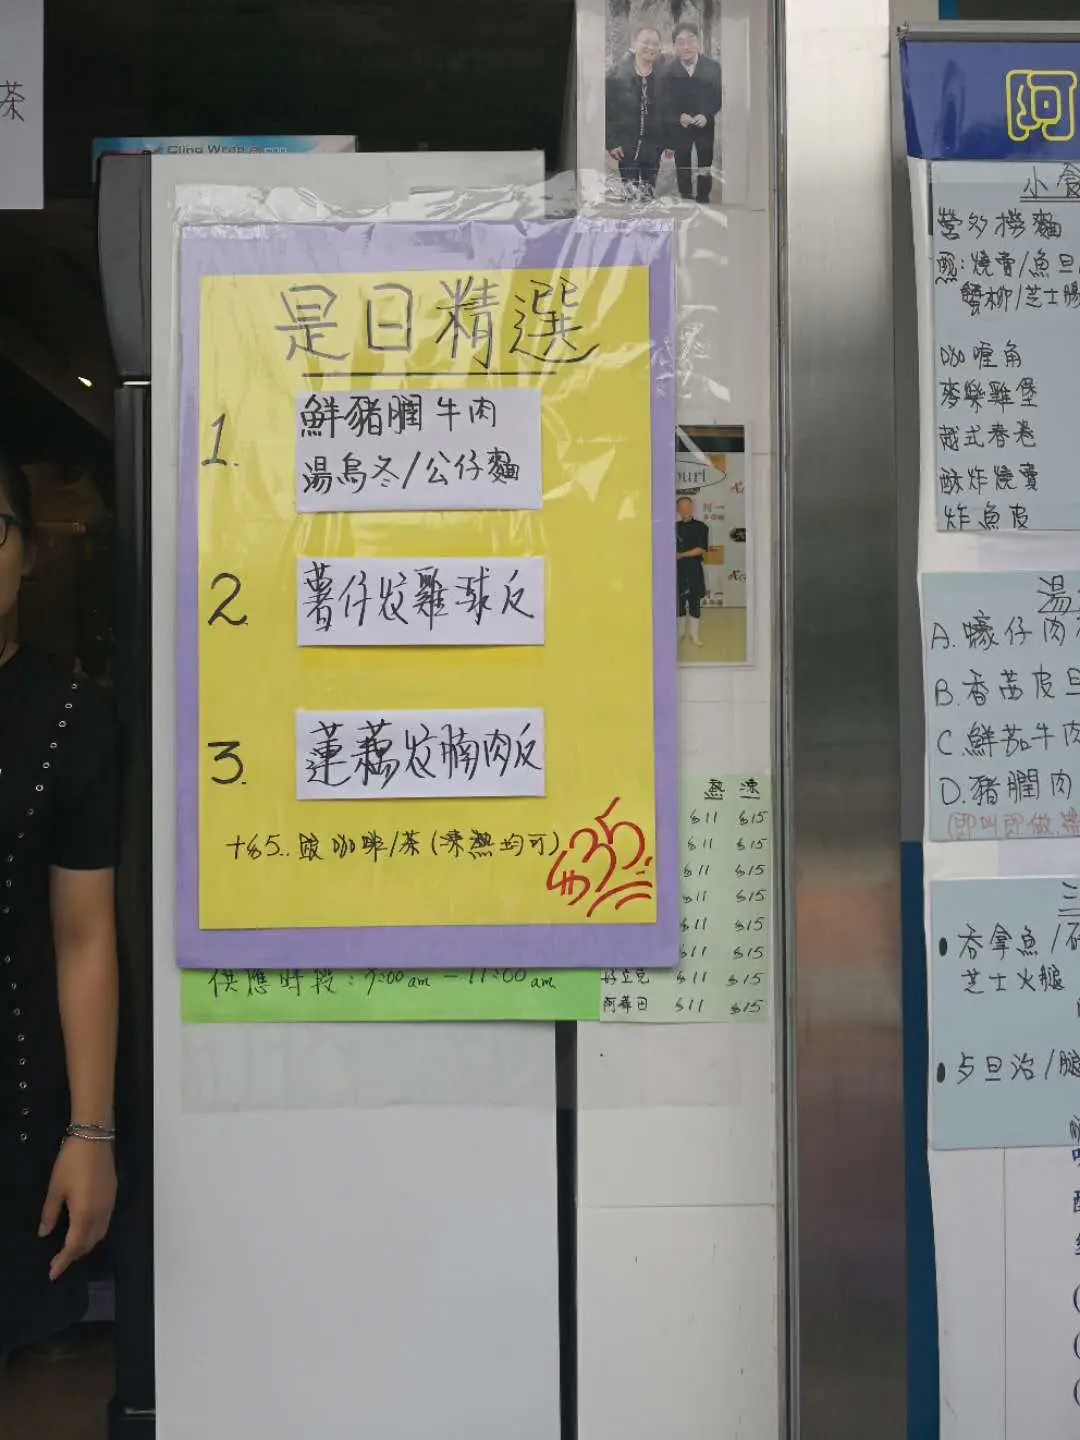 茶
Cling Wrap
是日精選
1.
鮮豬膶牛肉
湯烏冬/公仔麵
2
薯仔炆雞球反
3.
蓮藕炆腩肉反
+$5.. 跟咖啡/茶(凍熱均可)
$35
供應時段:7:00am-11:00am
熱 凍
$11 $15
$11 $15
$11 $15
$11 $15
$11 $15
$11 $15
好立克 $11 $15
阿華田 $11 $15
阿
小食
營多撈麵
配:燒賣/魚旦
蟹柳/芝士腸
咖喱角
麥樂雞堡
越式春卷
酥炸燒賣
炸魚皮
湯
A.蠔仔肉
B.香茜皮旦
C鮮茄牛肉
D.豬膶肉
(即叫即做,
三
•吞拿魚/
芝士火腿
•歺旦治/腿